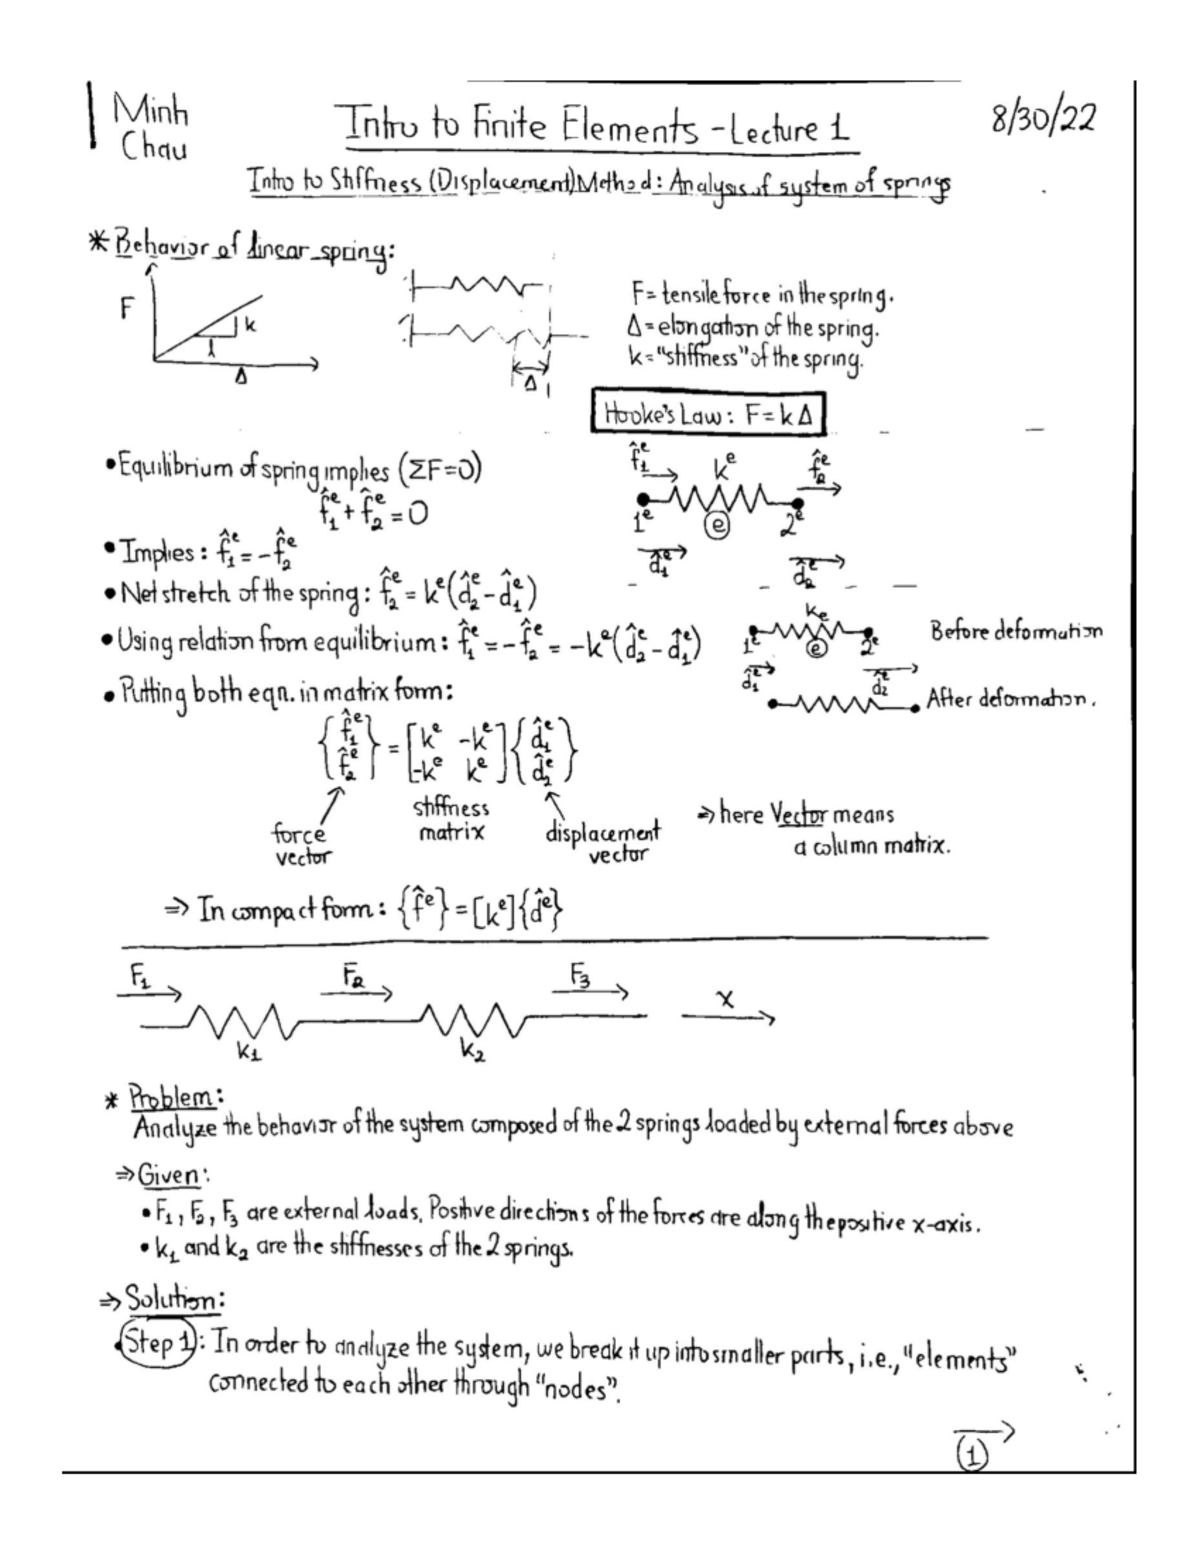 Minh Chau
Intro to Finite Elements - Lecture 1
8/30/22
Intro to Stiffness (Displacement) Method: Analysis of system of springs
* Behavior of linear spring:
F
k
1
Δ
Δ
F = tensile force in the spring.
Δ = elongation of the spring.
k = "stiffness" of the spring.
Hooke's Law: F = kΔ
• Equilibrium of spring implies (ΣF=0)
f̂₁ᵉ + f̂₂ᵉ = 0
f̂₁ᵉ kᵉ f̂₂ᵉ
1ᵉ ⓔ 2ᵉ
d̂₁ᵉ d̂₂ᵉ
• Implies: f̂₁ᵉ = -f̂₂ᵉ
• Net stretch of the spring: f̂₂ᵉ = kᵉ(d̂₂ᵉ - d̂₁ᵉ)
• Using relation from equilibrium: f̂₁ᵉ = -f̂₂ᵉ = -kᵉ(d̂₂ᵉ - d̂₁ᵉ)
kₑ
1ᵉ ⓔ 2ᵉ Before deformation
d̂₁ᵉ d̂₂ᵉ
After deformation.
• Putting both eqn. in matrix form:
{f̂₁ᵉ} = [kᵉ -kᵉ] {d̂₁ᵉ}
{f̂₂ᵉ} [-kᵉ kᵉ] {d̂₂ᵉ}
force vector
stiffness matrix
displacement vector
⇒ here Vector means
a column matrix.
⇒ In compact form: {f̂ᵉ} = [kᵉ]{d̂ᵉ}
F₁ F₂ F₃ x
k₁ k₂
* Problem:
Analyze the behavior of the system composed of the 2 springs loaded by external forces above
⇒ Given:
• F₁, F₂, F₃ are external loads. Positive directions of the forces are along the positive x-axis.
• k₁ and k₂ are the stiffnesses of the 2 springs.
⇒ Solution:
• Step 1: In order to analyze the system, we break it up into smaller parts, i.e., "elements"
connected to each other through "nodes".
→
①